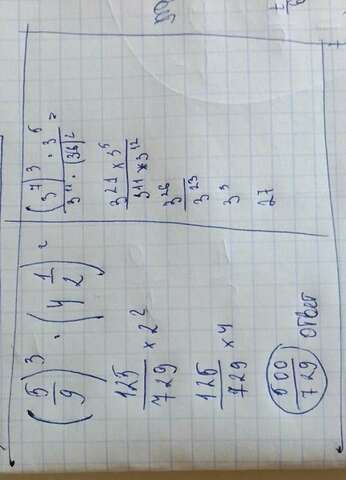 (5/9)^3 · (4 1/2)^2
125/729 × 2^2
125/729 × 4
500/729 ответ
((3^7)^3 · 3^5)/(3^11 · (3^6)^2) =
(3^21 × 3^5)/(3^11 × 3^12)
3^26/3^23
3^3
27